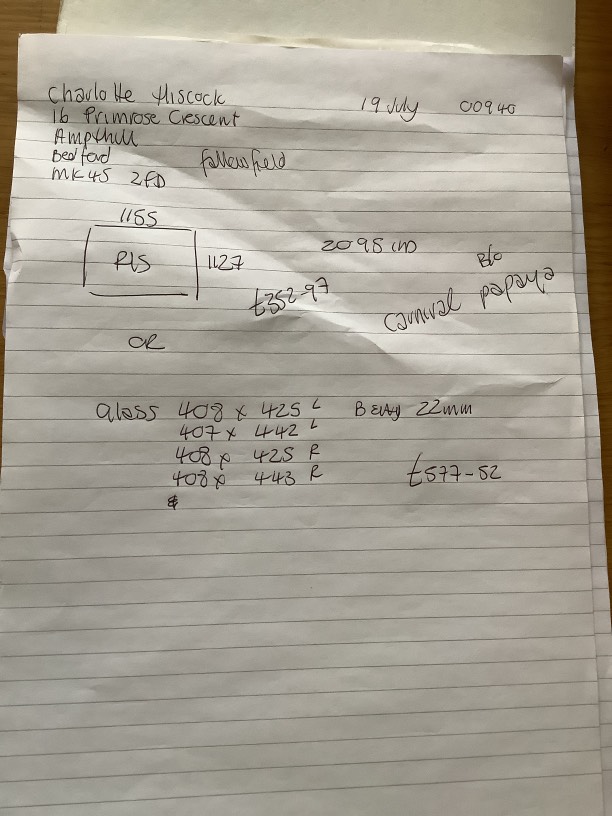 Charlotte Hiscock 19 July 00940
16 Primrose Crescent
Ampthill
Bedford Fallowsfield
MK45 2FD
1155
PIS 1127
2095
£352-97
B/O
Carnival papaya
OR
Glass 408 x 425 L 22mm
407 x 442 L
408 x 425 R
408 x 443 R
£577-52